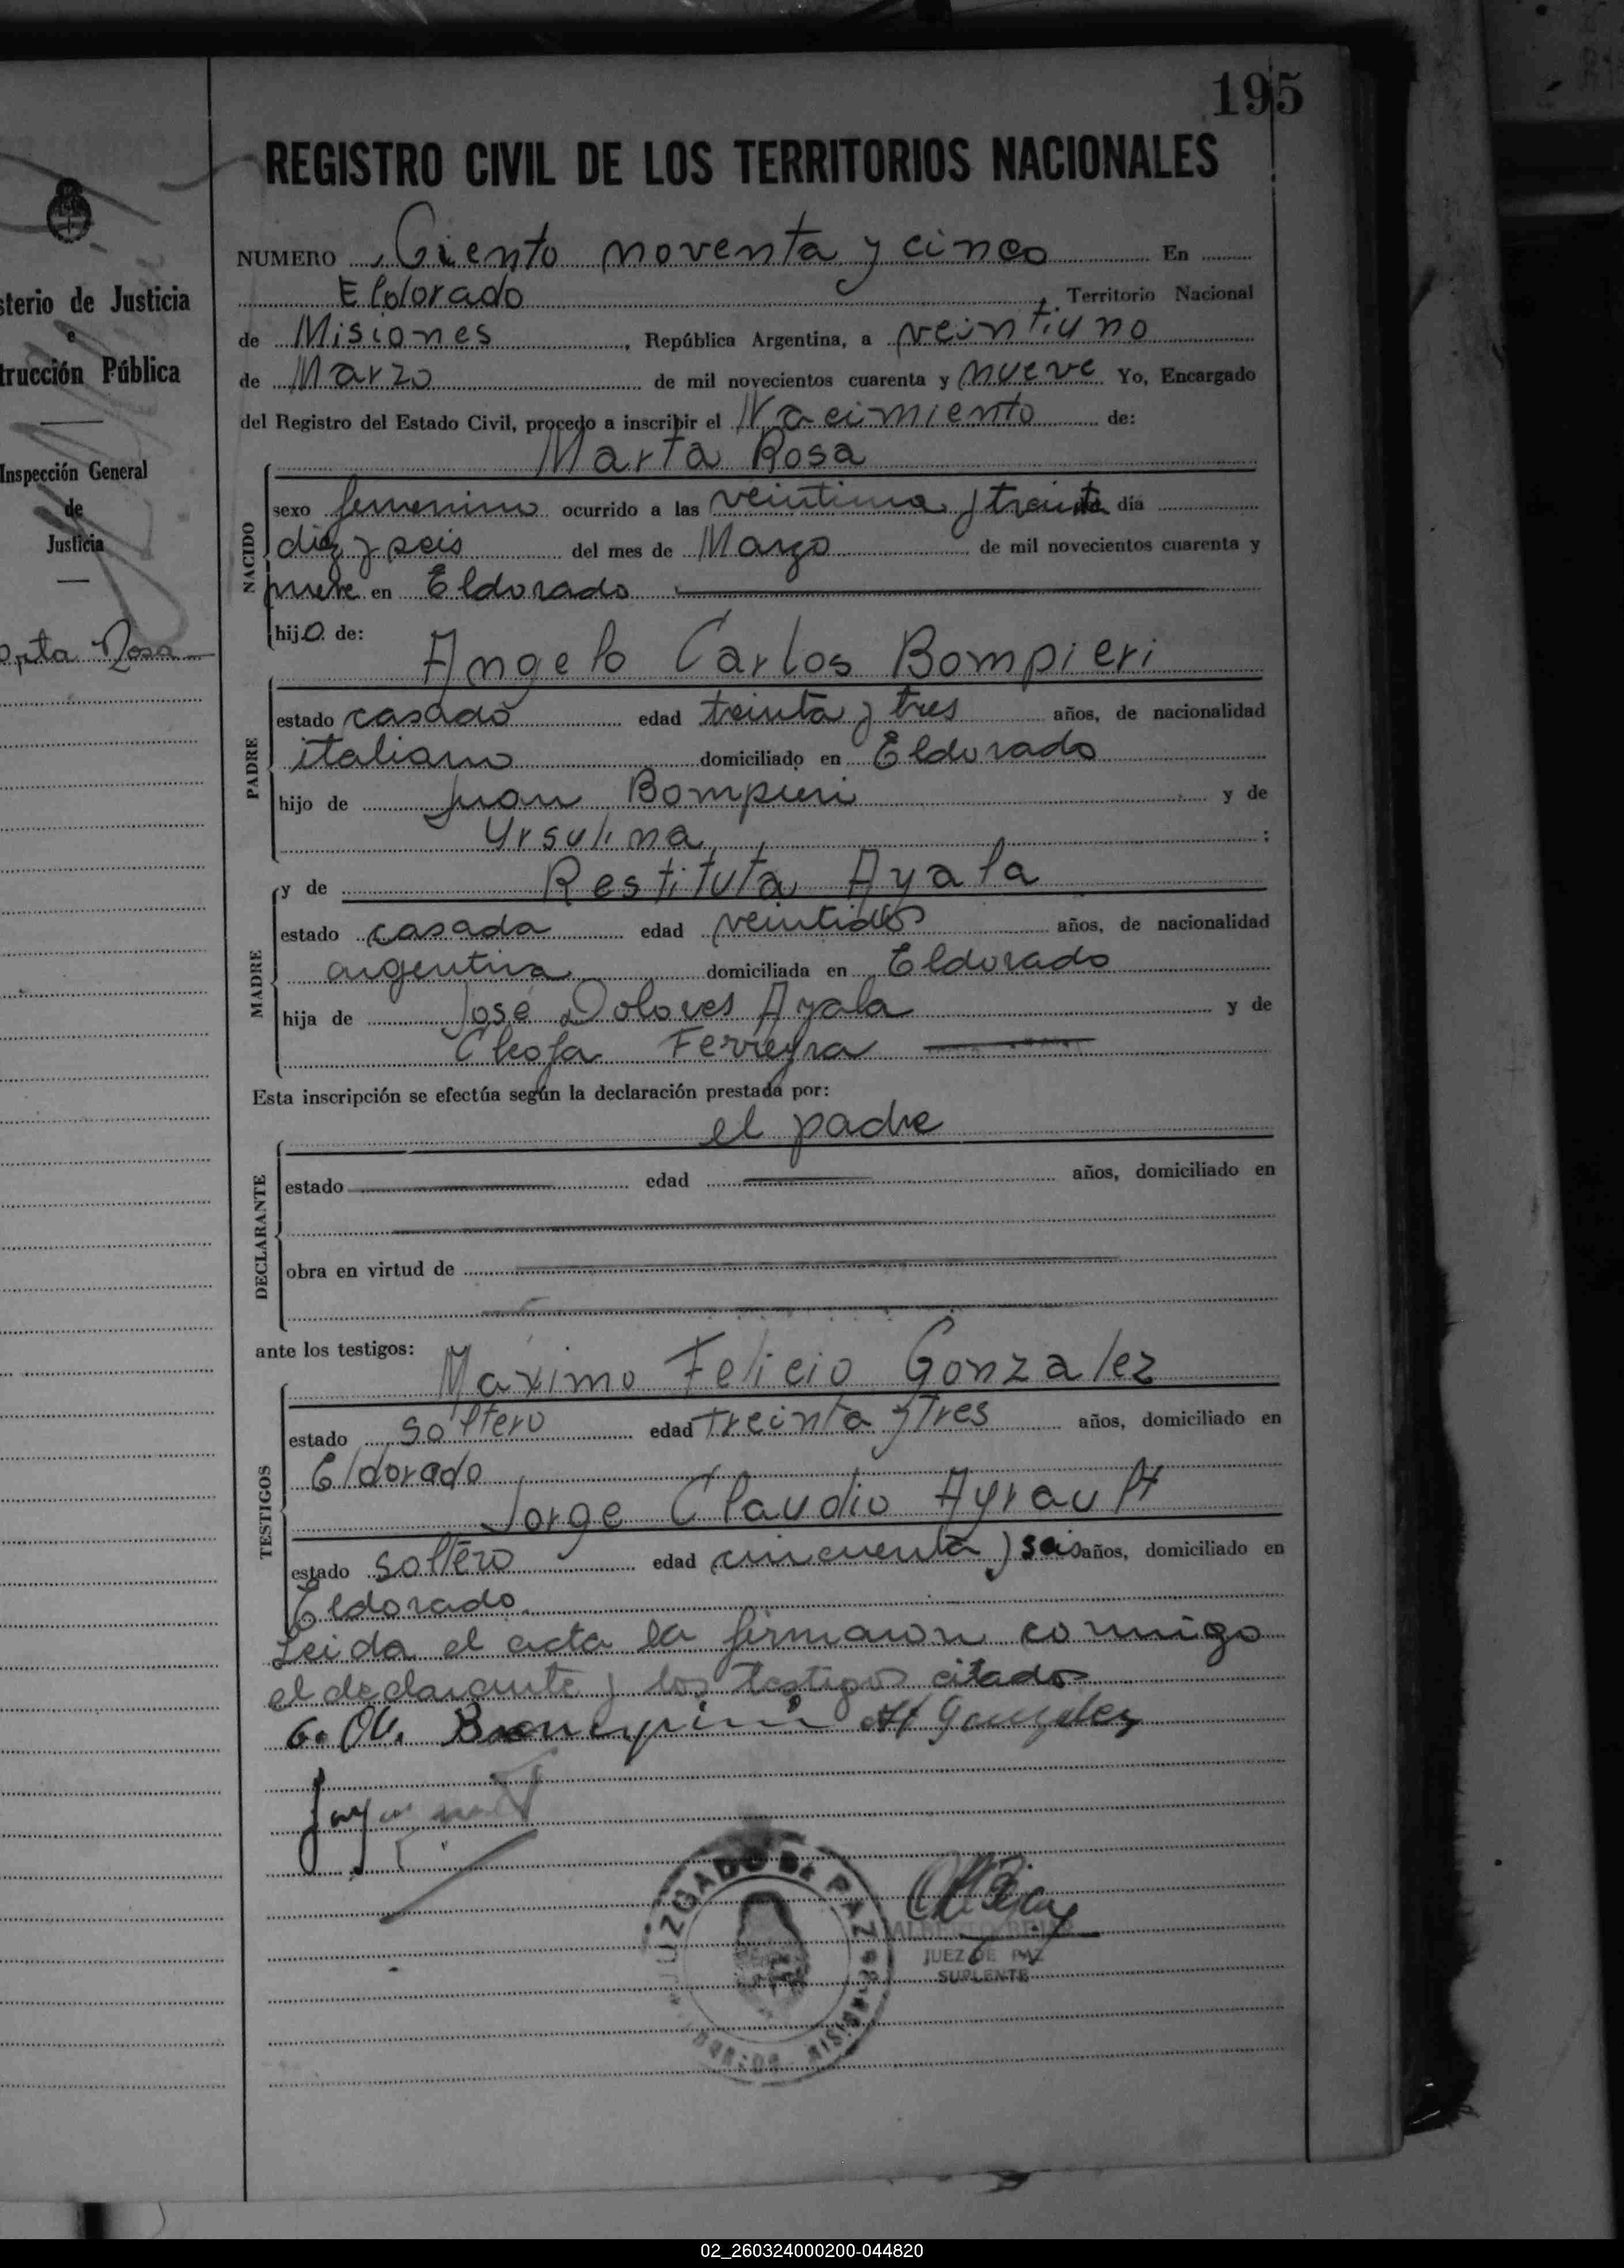 195
REGISTRO CIVIL DE LOS TERRITORIOS NACIONALES
NUMERO Ciento noventa y cinco En
Eldorado, Territorio Nacional
de Misiones, República Argentina, a veintiuno
de Marzo de mil novecientos cuarenta y nueve Yo, Encargado
del Registro del Estado Civil, procedo a inscribir el Nacimiento de:
Marta Rosa
NACIDO
sexo femenino ocurrido a las veintiuna y treinta día
diez y seis del mes de Marzo de mil novecientos cuarenta y
nueve en Eldorado
hijo de:
Angelo Carlos Bompieri
PADRE
estado casado edad treinta y tres años, de nacionalidad
italiano domiciliado en Eldorado
hijo de Juan Bompieri y de
Ursulina ;
y de Restituta Ayala
MADRE
estado casada edad veintidos años, de nacionalidad
argentina domiciliada en Eldorado
hija de José Dolores Ayala y de
Cleofa Ferreyra
Esta inscripción se efectúa según la declaración prestada por:
el padre
DECLARANTE
estado edad años, domiciliado en
obra en virtud de
ante los testigos:
Máximo Felicio Gonzalez
TESTIGOS
estado soltero edad treinta y tres años, domiciliado en
Eldorado
Jorge Claudio Ayrault
estado soltero edad cincuenta y seis años, domiciliado en
Eldorado
Leida el acta la firmaron conmigo
el declarante y los testigos citados
Bompieri Gonzalez
JUZGADO DE PAZ
JUEZ DE PAZ
SUPLENTE
sterio de Justicia
e
trucción Pública
Inspección General
de
Justicia
Rosa
02_260324000200-044820